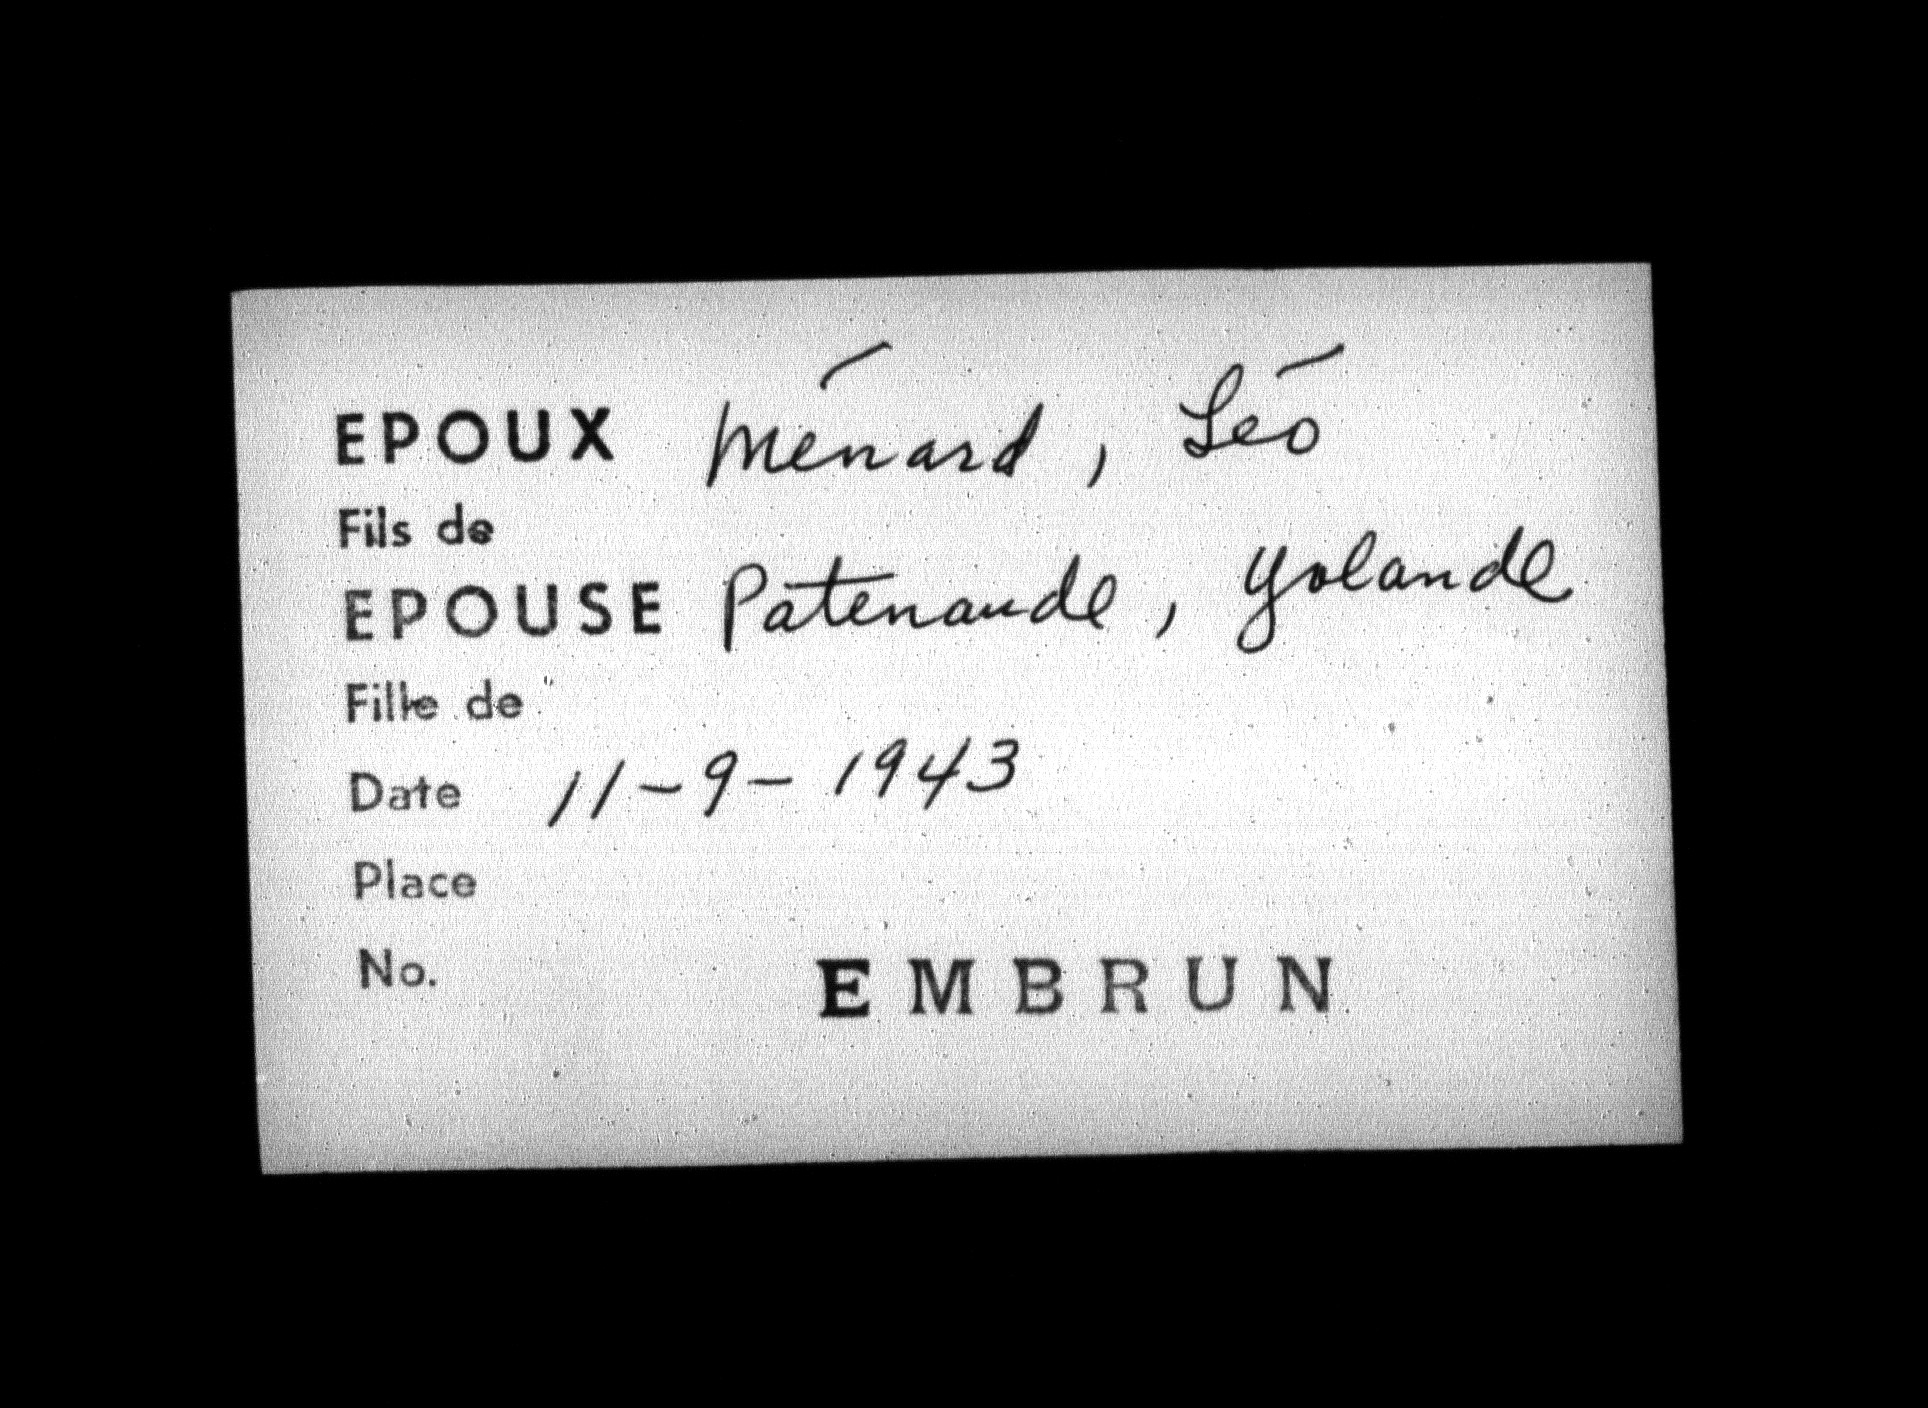 EPOUX Ménard, Léo
Fils de
EPOUSE Patenaude, Yolande
Fille de
Date 11-9-1943
Place
No.
EMBRUN